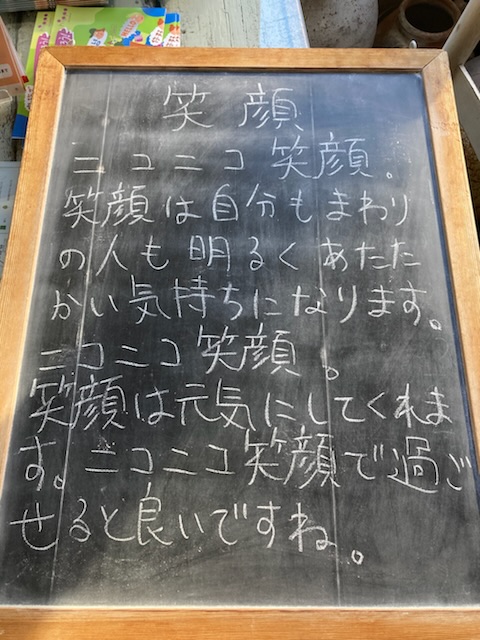 笑顔
ニコニコ笑顔。
笑顔は自分もまわり
の人も明るくあたた
かい気持ちになります。
ニコニコ笑顔。
笑顔は元気にしてくれま
す。ニコニコ笑顔で過ご
せると良いですね。